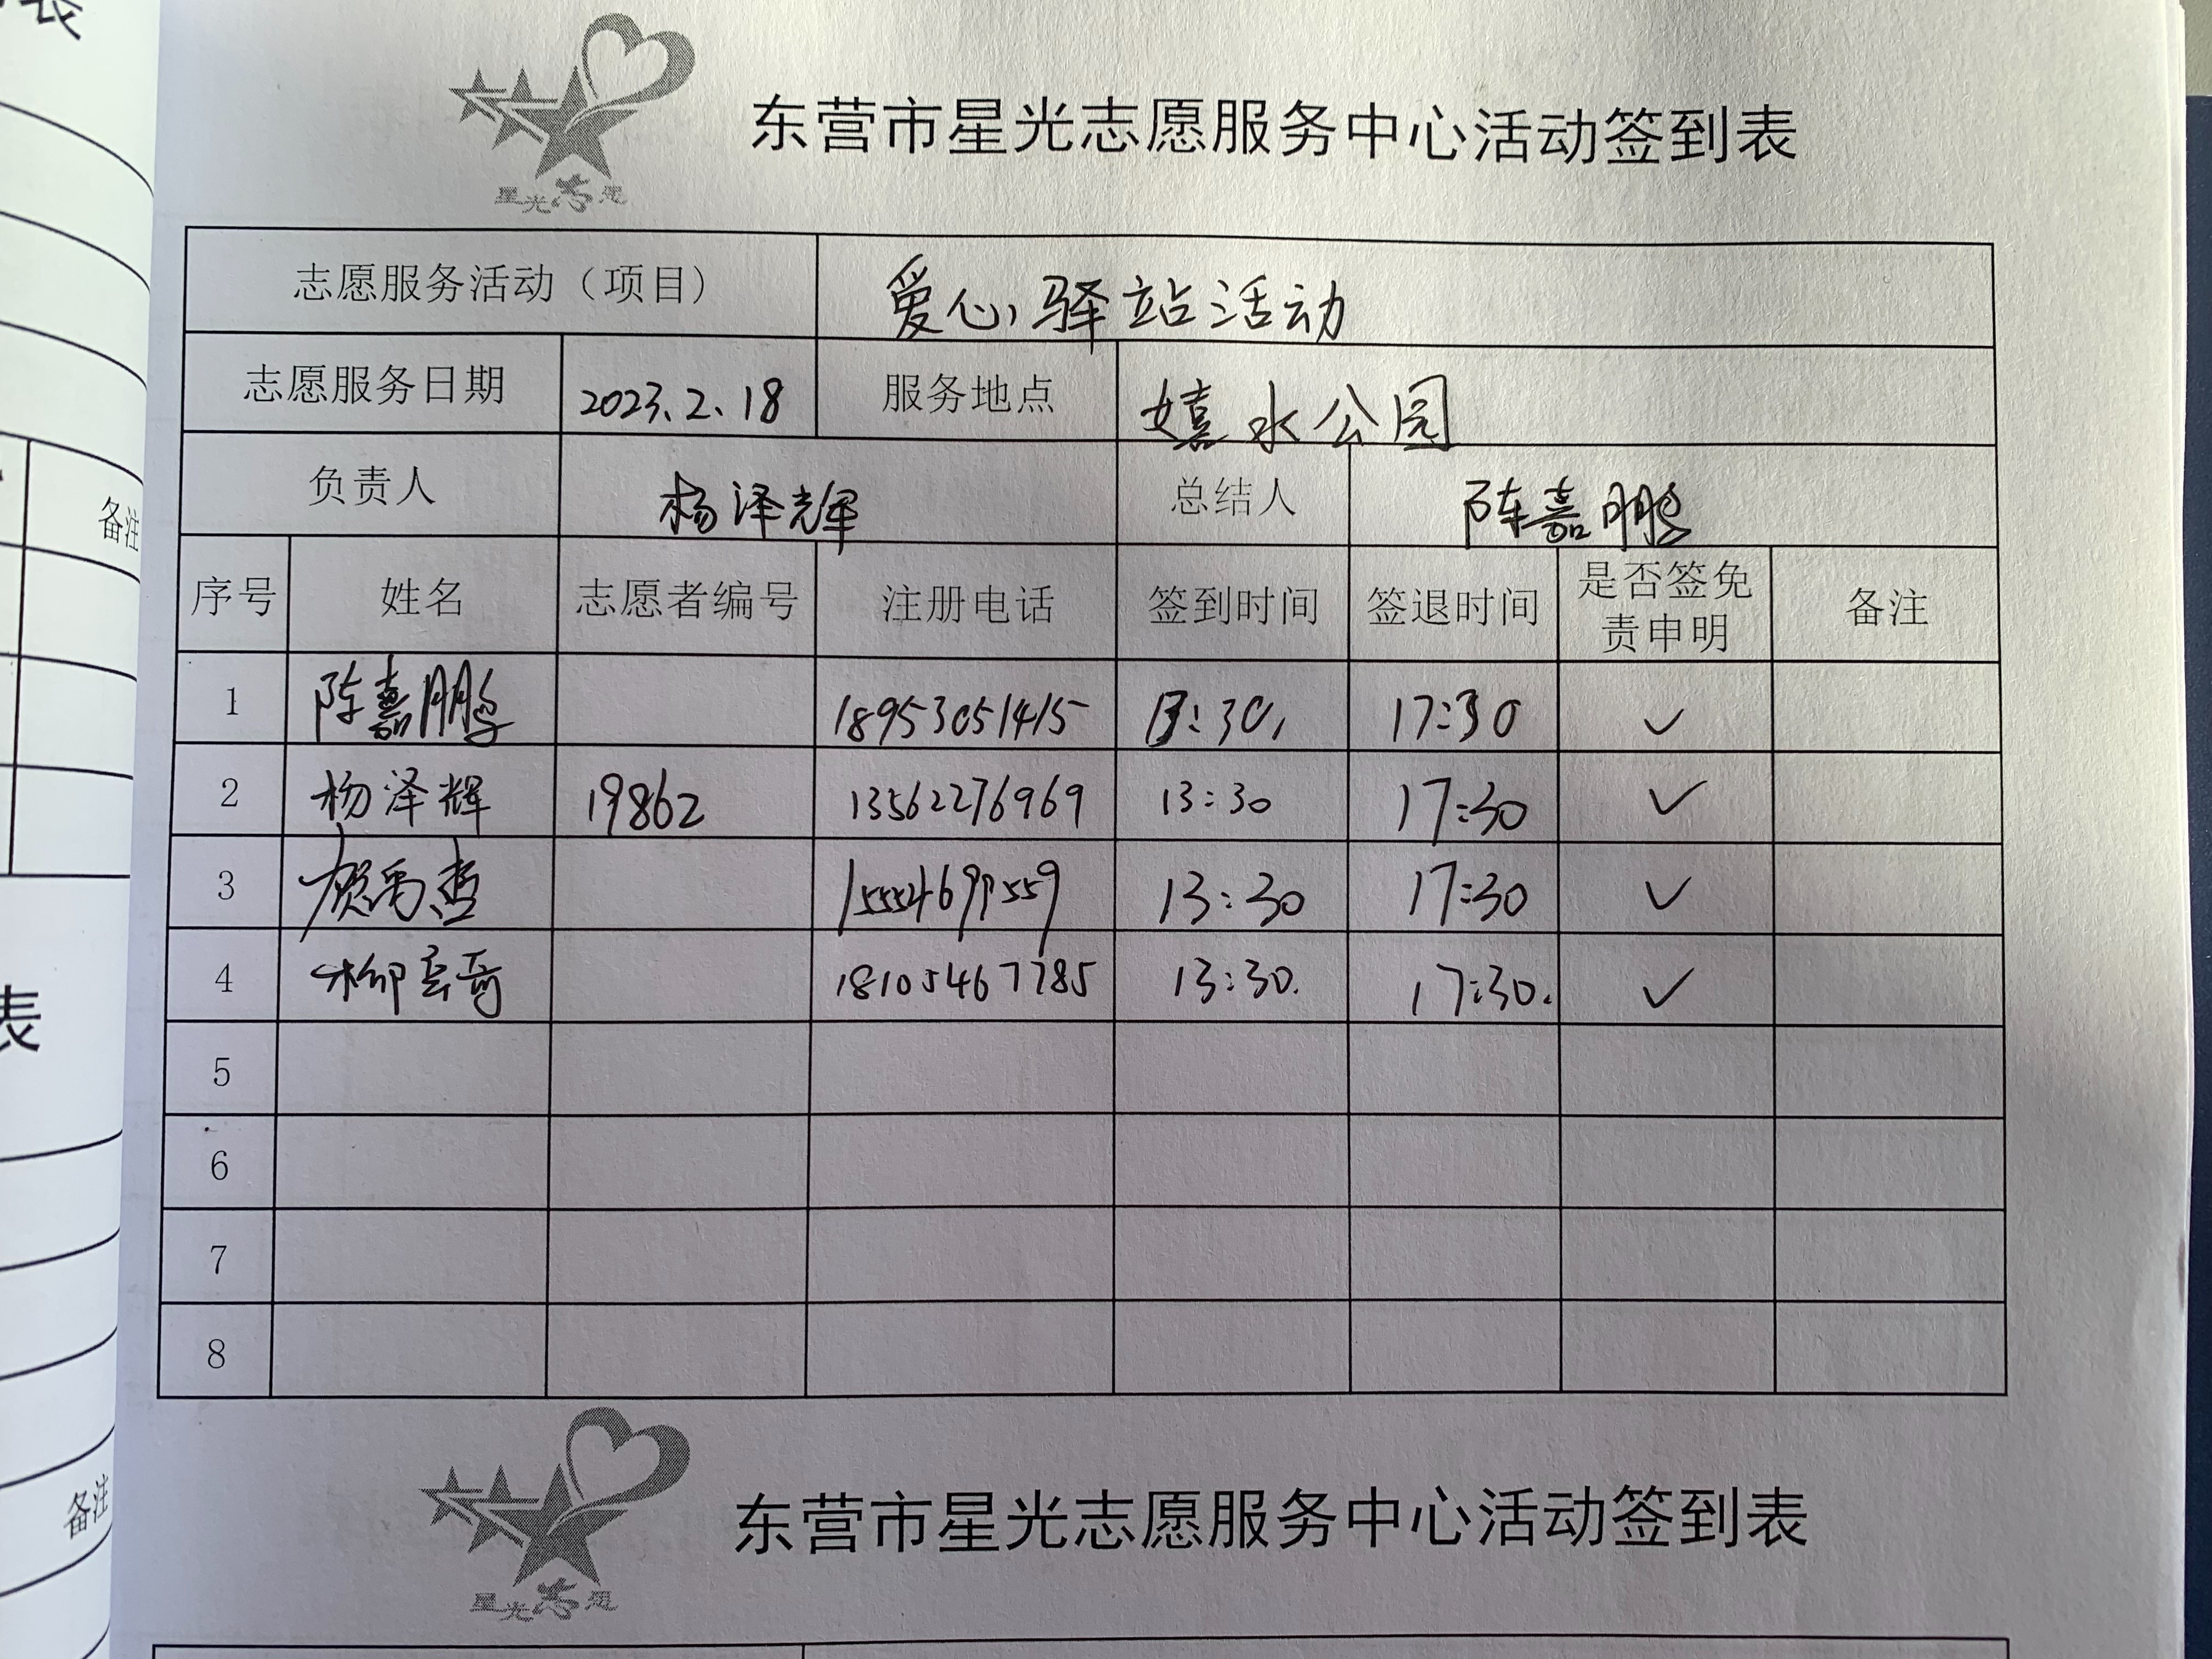 表
星光志愿
东营市星光志愿服务中心活动签到表
志愿服务活动（项目） 爱心驿站活动
志愿服务日期 2023.2.18 服务地点 嬉水公园
负责人 杨泽辉 总结人 陈嘉鹏
备注
序号 姓名 志愿者编号 注册电话 签到时间 签退时间 是否签免责申明 备注
1 陈嘉鹏 18953051415 13:30, 17:30 ✓
2 杨泽辉 19862 13562276969 13:30 17:30 ✓
3 13:30 17:30 ✓
4 18105467785 13:30. 17:30. ✓
表
5
6
7
8
备注
星光志愿
东营市星光志愿服务中心活动签到表